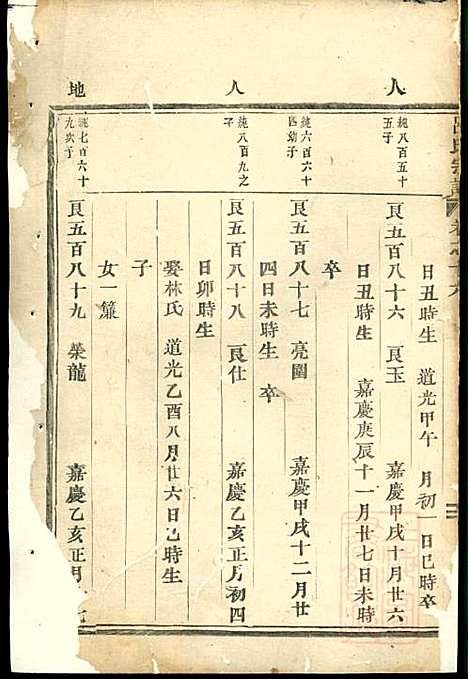 人
人
地
呂氏宗譜
日丑時生 道光甲午 月初一日巳時卒
純八百五十
五子
艮五百八十六 艮玉 嘉慶甲戌十月廿六
日丑時生 嘉慶庚辰十一月廿七日未時
卒
純六百六十
四幼子
艮五百八十七 亮圓 嘉慶甲戌十二月廿
四日未時生 卒
純八百九之
子
艮五百八十八 艮仕 嘉慶乙亥正月初四
日卯時生
娶林氏 道光乙酉八月廿六日巳時生
子
女一簾
純七百六十
九次子
艮五百八十九 榮龍 嘉慶乙亥正月